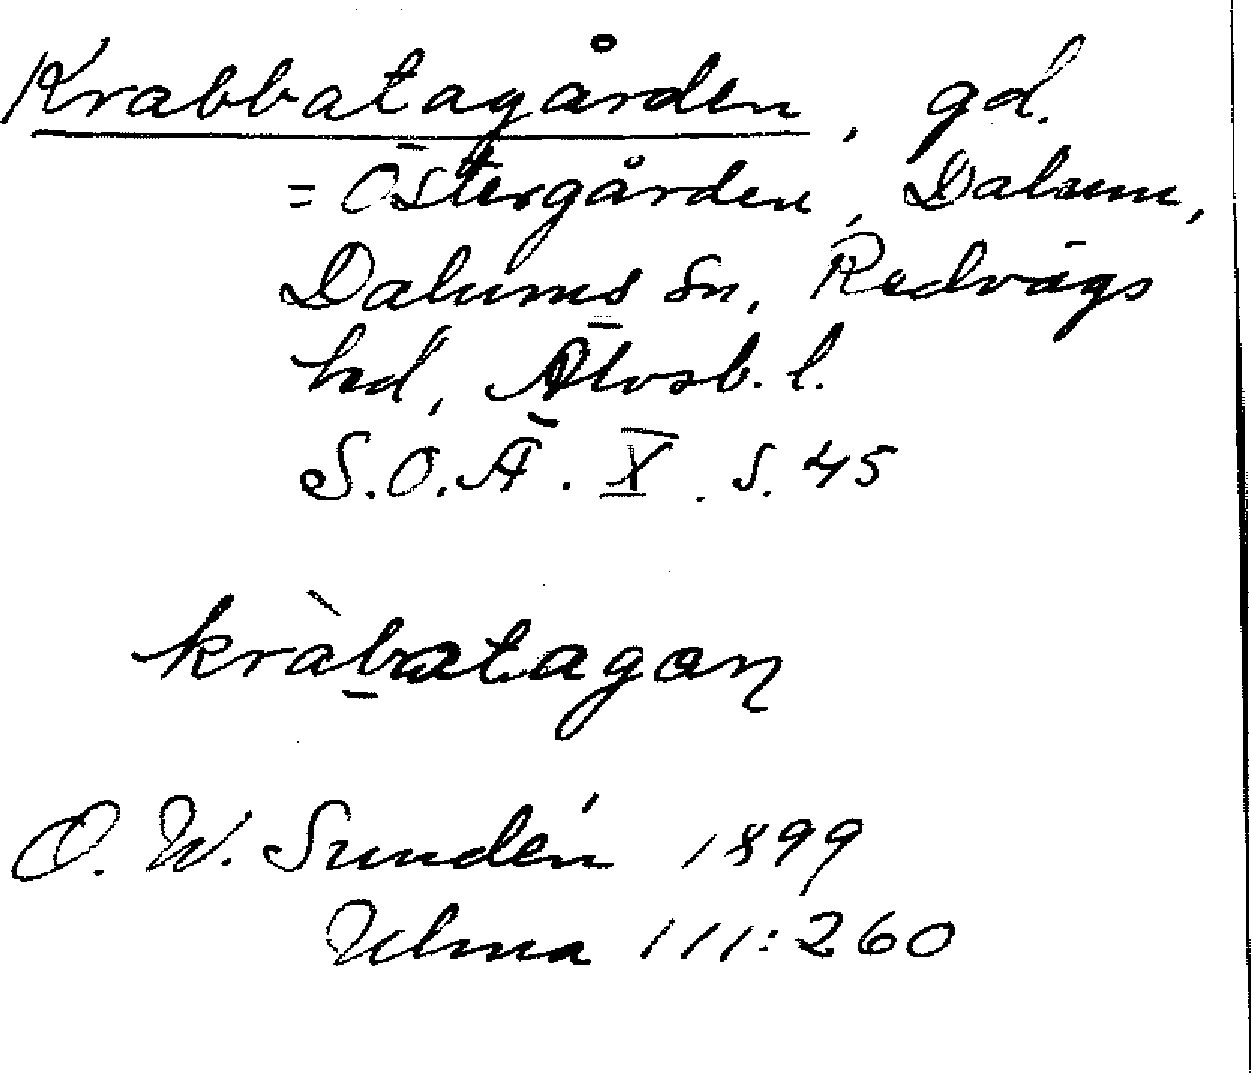 Krabbatagården, gd.
= Östergården, Dalum,
Dalums sn, Redvägs
hd, Älvsb. l.
S.O.Ä. X. s. 45
kràbatagan
O. W. Sundén 1899
Ulma 111:260